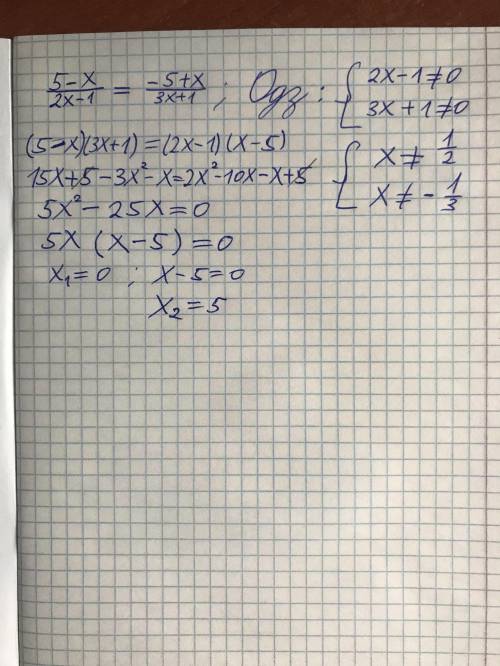 (5-x)/(2x-1) = (-5+x)/(3x+1) ; Одз : { 2x-1≠0
3x+1≠0
(5-x)(3x+1)=(2x-1)(x-5)
{ x≠ 1/2
x≠ - 1/3
15x+5-3x²-x=2x²-10x-x+5
5x²-25x=0
5x (x-5)=0
x₁=0 ; x-5=0
x₂=5